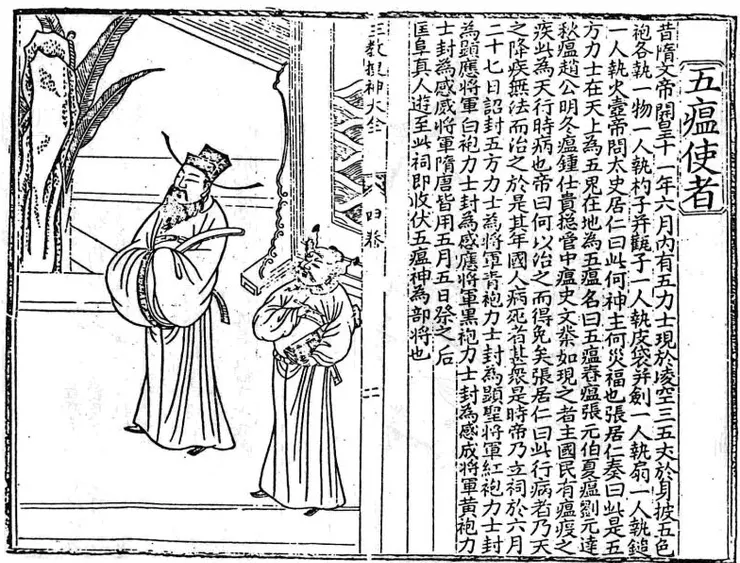 五瘟使者
昔隋文帝開皇十一年六月內有五力士現於凌空三五丈於身披五色
袍各執一物一人執杓子并罐子一人執皮袋并劍一人執扇一人執鎚
一人執火壺帝問太史居仁曰此何神主何災福也張居仁奏曰此是五
方力士在天上為五鬼在地為五瘟名曰五瘟春瘟張元伯夏瘟劉元達
秋瘟趙公明冬瘟鍾仕貴揔管中瘟史文業如現之者主國民有瘟疫之
疾此為天行時病也帝曰何以治之而得免矣張居仁曰此行病者乃天
之降疾無法而治之於是其年國人病死者甚衆是時帝乃立祠於六月
二十七日詔封五方力士為將軍青袍力士封為顯聖將軍紅袍力士封
為顯應將軍白袍力士封為感應將軍黑袍力士封為感成將軍黃袍力
士封為感威將軍隋唐皆用五月五日祭之后
匡阜真人遊至此祠即收伏五瘟神為部將也
三教搜神大全
四卷
二